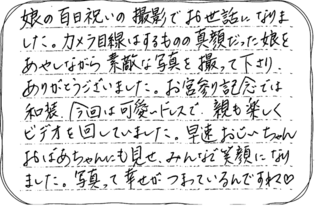 娘の百日祝いの撮影でお世話になりま
した。カメラ目線はするものの真顔だった娘を
あやしながら素敵な写真を撮って下さり
ありがとうございました。お宮参り記念では
和装、今回は可愛いドレスで、親も楽しく
ビデオを回していました。早速おじいちゃん
おばあちゃんにも見せ、みんなで笑顔になり
ました。写真って幸せがつまっているんですね♡